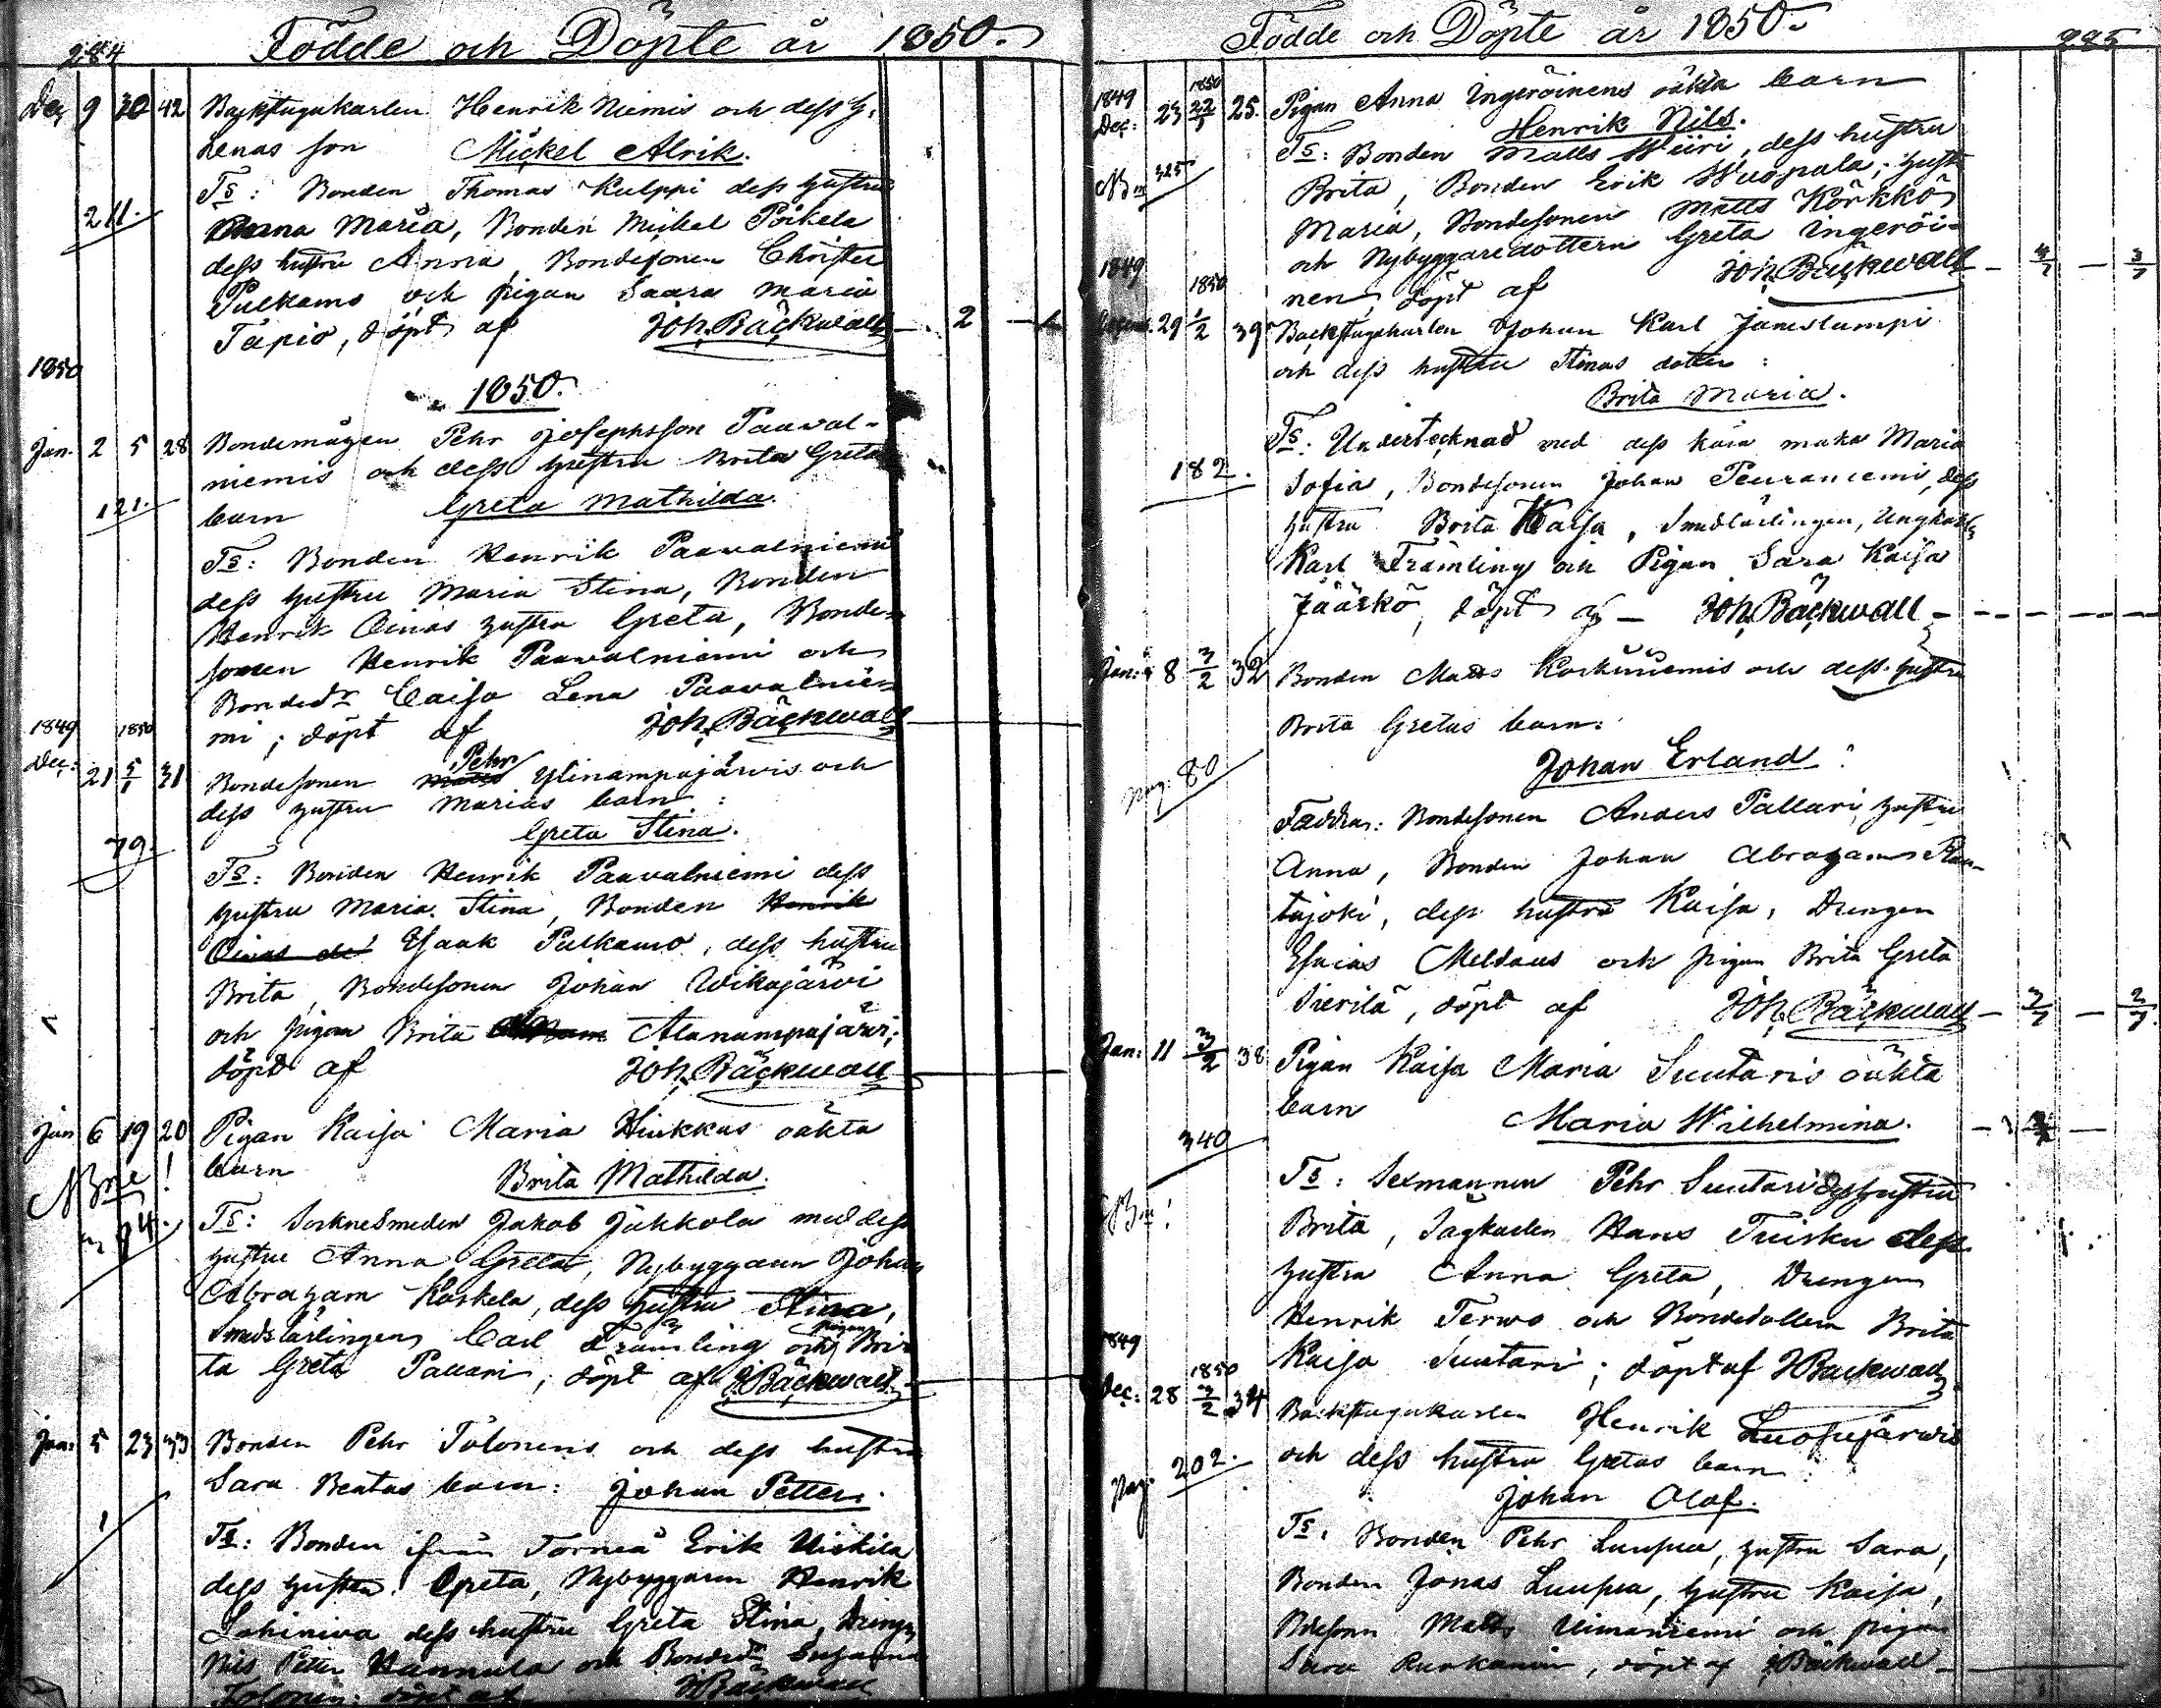 284
Födde och Döpte år 1850.
Dec 9 30 42 Backstugukarlen Henrik Niemis och dess h.
Lenas son Mickel Alrik.
Ts: Bonden Thomas Kulppi dess hustru
211.
Anna Maria, Bonden Mickel Poikela
dess hustru Anna, Bondesonen Christer
Pulkamo och pigan Saara Maria
Tapio, döpt af Joh. Bäckwall 2
1850
1850.
Jan. 2 5 28 Bondemågen Pehr Josephsson Paaval-
niemis och dess hustru Brita Greta
121.
barn Greta Mathilda.
Ts: Bonden Henrik Paavalniemi
dess hustru Maria Stina, Bonden
Henrik Oinas hustru Greta, Bonde-
sonen Henrik Paavalniemi och
Bondedr Caisa Lena Paavalnie-
mi; döpt af Joh. Bäckwall
1849 1850
Dec: 21 5/1 31 Bondesonen Pehr Ylinampajärvis och
dess hustru Marias barn:
Greta Stina.
79.
Ts: Bonden Henrik Paavalniemi dess
hustru Maria Stina, Bonden Henrik
Oinas de Esaak Pulkamo, dess hustru
Brita, Bondesonen Johan Wikajärvi
och pigan Brita Alanampajärvi;
döpt af Joh. Bäckwall
Jan 6 19 20 Pigan Kaisa Maria Hiukkas oäkta
barn Brita Mathilda.
NB !
Ts: Socknesmeden Jakob Jukkola med dess
hustru Anna Greta, Nybyggaren Johan
Abraham Koskela, dess hustru Stina,
Smedslärlingen Carl Främling och pigan Bri-
ta Greta Pallari; döpt af J Bäckwall
Jan: 5 23 33 Bonden Pehr Tolonens och dess hustru
Sara Beatas barn: Johan Petter.
1
Ts: Bonden ifrån Torneå Erik Niskila
dess hustru Greta, Nybyggaren Henrik
Lohiniva dess hustru Greta Stina, Drängen
Nils Petter Hannula och Bonded Susanna
Tolonen: döpt af J Bäckwall
285
Födde och Döpte år 1850.
1849 1850
Dec: 23 22/1 25. Pigan Anna Ingeröinens oäkta barn
Henrik Nils.
325
NB
Ts: Bonden Matts Wiiri, dess hustru
Brita, Bonden Erik Wuopala, hust
Maria, Bondesonen Matts Körkkö
och Nybyggaredottern Greta Ingeröi-
nen, döpt af Joh. Bäckwall 4/7 3/7
1849 1850
29 1/2 39 Backstugukarlen Johan Karl Jänislampi
och dess hustru Stinas dotter:
Brita Maria.
Ts. Undertecknad med dess kära maka Maria
182.
Sofia, Bondesonen Johan Peuraniemi, dess
hustru Brita Kaisa, Smedlärlingen, Ungkarlen
Karl Främling och Pigan Sara Kaisa
Jääskö, döpt af Joh. Bäckwall
Jan: 8 3/2 32 Bonden Matts Korkiniemis och dess hustru
Brita Gretas barn:
Johan Erland
pag: 80
Faddrar: Bondesonen Anders Pallari, hustru
Anna, Bonden Johan Abraham Rau-
tajoki, dess hustru Kaisa, Drengen
Esaias Meldaus och pigan Brita Greta
Sierilä, döpt af Joh. Bäckwall 3/7 2/7
Jan: 11 3/2 38 Pigan Kaisa Maria Suutaris oäkta
barn Maria Wilhelmina.
340
Ts: Sexmannen Pehr Suutari dess hustru
Brita, Sågkarlen Hans Tuisku dess
hustru Anna Greta, Drengen
Henrik Terwo och Bondedottern Brita
Kaisa Suutari; döpt af J Bäckwall
1849 1850
Dec: 28 3/2 34 Backstugukarlen Henrik Luosujärvis
och dess hustru Gretas barn
pag. 202.
Johan Olof.
Ts. Bonden Pehr Luupea, hustru Sara,
Bonden Jonas Luupea, hustru Kaisa,
Bdesonn Matts Uimaniemi och pigan
Sara Kurkamo, döpt af J Bäckwall